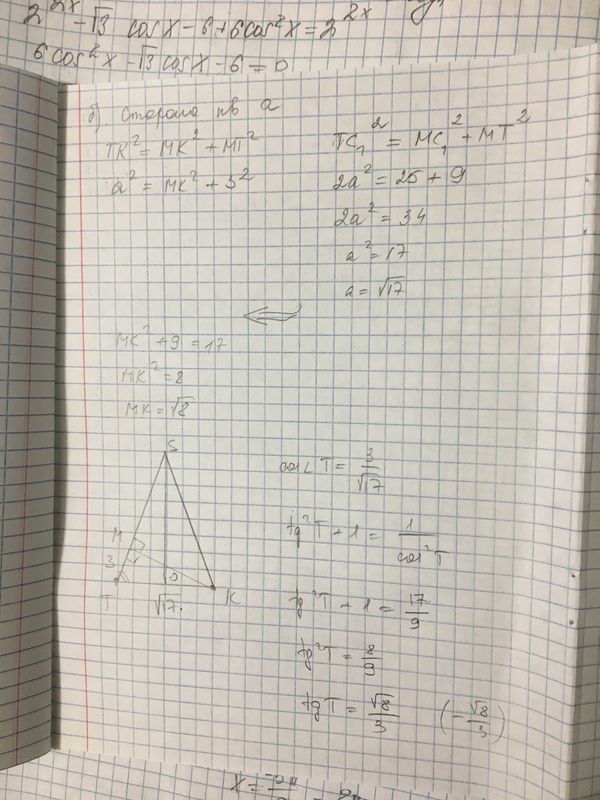 2^{2x} - √13 cos x - 6 + 6cos²x = 2^{2x}
6cos²x - √13 cos x - 6 = 0
б) Сторона кв a
TK² = MK² + MT²
a² = MK² + 3²
TC₁² = MC₁² + MT²
2a² = 25 + 9
2a² = 34
a² = 17
a = √17
MK² + 9 = 17
MK² = 8
MK = √8
S
M
3
T
√17
O
K
cos∠T = 3/√17
tg²T + 1 = 1/cos²T
tg²T + 1 = 17/9
tg²T = 8/9
tgT = √8/3 (-√8/3)